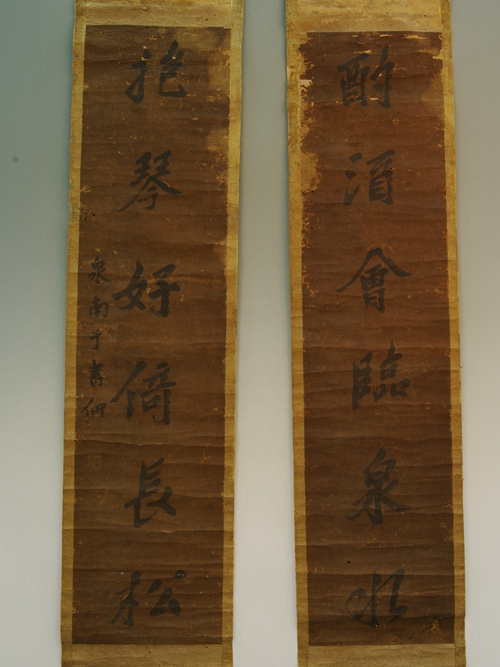 酌酒會臨泉水
抱琴好倚長松
泉南于書